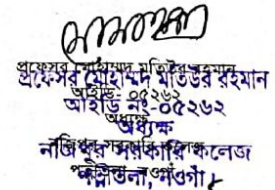 প্রফেসর মোহাম্মদ মতিউর রহমান
আইডি নং-০৫২৬২
অধ্যক্ষ
নজিপুর সরকারি কলেজ
পত্নীতলা, নওগাঁ।